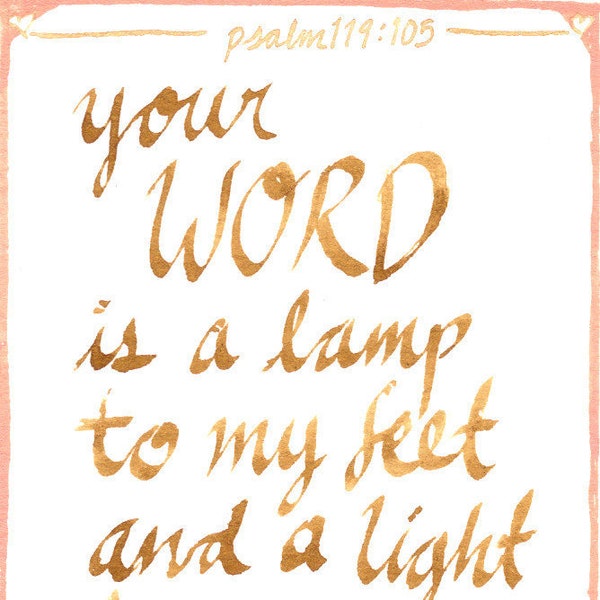 psalm119:105
your
WORD
is a lamp
to my feet
and a light